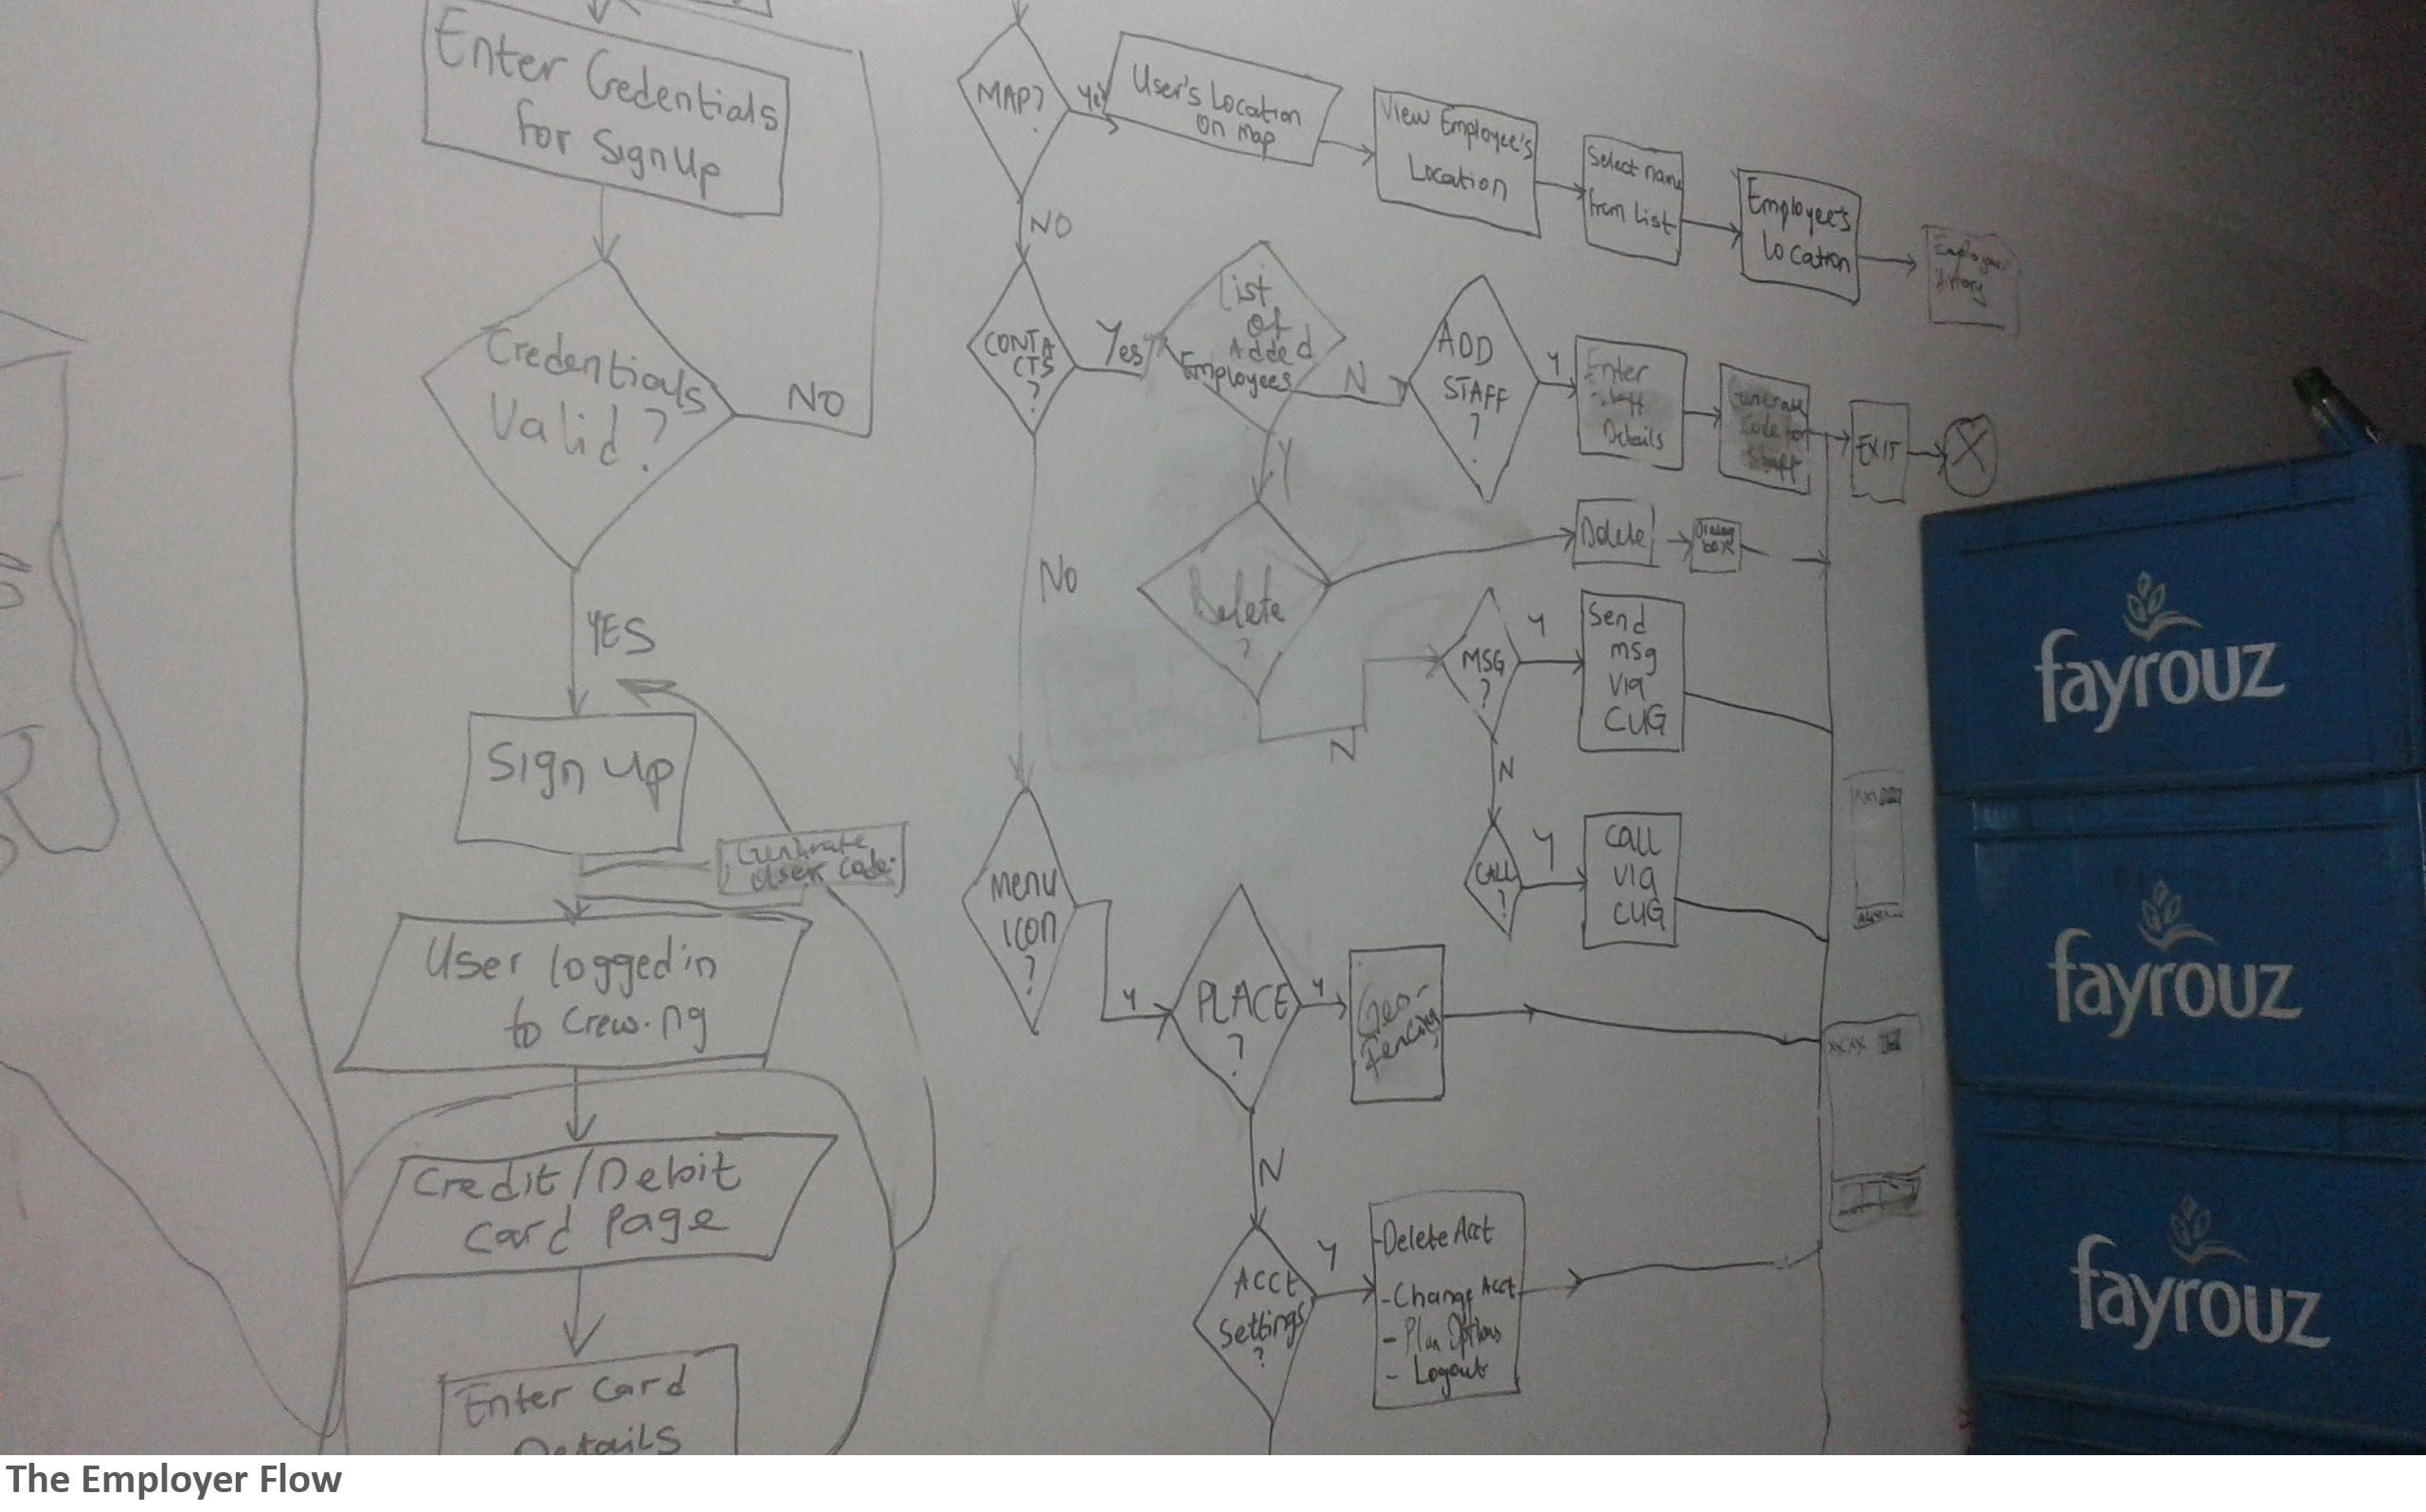 Enter Credentials
for SignUp
Credentials
Valid?
NO
YES
Sign up
Generate
User Code
User logged in
to Crew.ng
Credit/Debit
Card Page
Enter Card
Details
MAP?
Yes
User's Location
on map
View Employee's
Location
Select name
from List
Employee's
Location
Employee
History
NO
CONTA
CTS
?
Yes
List
of
Added
Employees
N
ADD
STAFF
?
Y
Enter
Staff
Details
Generate
Code for
Staff
EXIT
X
Y
NO
Delete
?
Delete
Dialog
box
N
MSG
?
Y
Send
msg
via
CUG
N
CALL
?
Y
Call
via
CUG
Menu
icon
?
Y
PLACE
?
Y
Geo-
Fencing
N
Acct
Settings
?
Y
-Delete Acct
-Change Acct
- Plan Options
- Logout
fayrouz
fayrouz
fayrouz
The Employer Flow